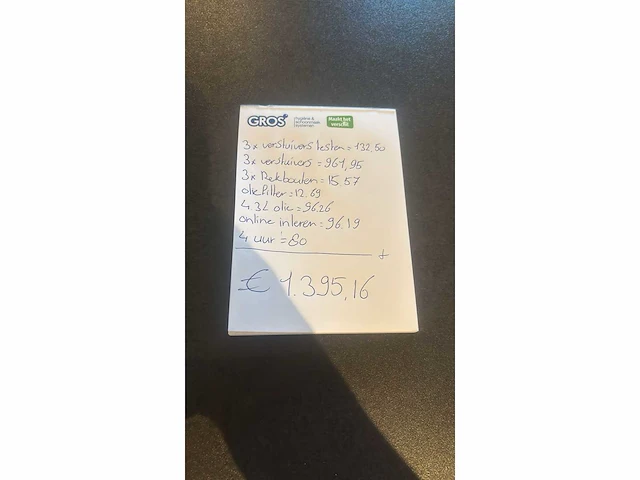 GROS
Hygiëne &
schoonmaak
systemen
Maakt het
verschil!
3x verstuivers testen = 132,50
3x verstuivers = 961,95
3x Rekbouten = 15,57
oliefilter = 12.69
4.3L olie = 96.26
online inleren = 96.19
4 uur = 80
+
€ 1.395,16